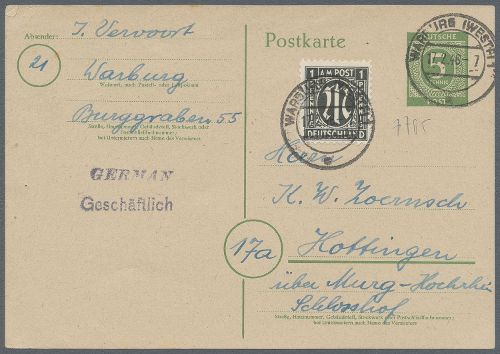 Absender: J. Vervoort
21
Warburg
Wohnort, auch Zustell- oder Leitpostamt
Burggraben 55
Straße, Hausnummer, Gebäudeteil, Stockwerk oder
Postschließfachnummer;
bei Untermietern auch Name des Vermieters
GERMAN
Geschäftlich
Postkarte
WARBURG (WESTF)
DEUTSCHE
5
PFENNIG
POST
1 AM POST 1
PFENNIG
DEUTSCHLAND
WARBURG
7785
Herrn
K. W. Zoernsch
17a
Hottingen
über Murg-Hochrhein
Schlosshof
Straße, Hausnummer, Gebäudeteil, Stockwerk oder Postschließfachnummer;
bei Untermietern auch Name des Vermieters